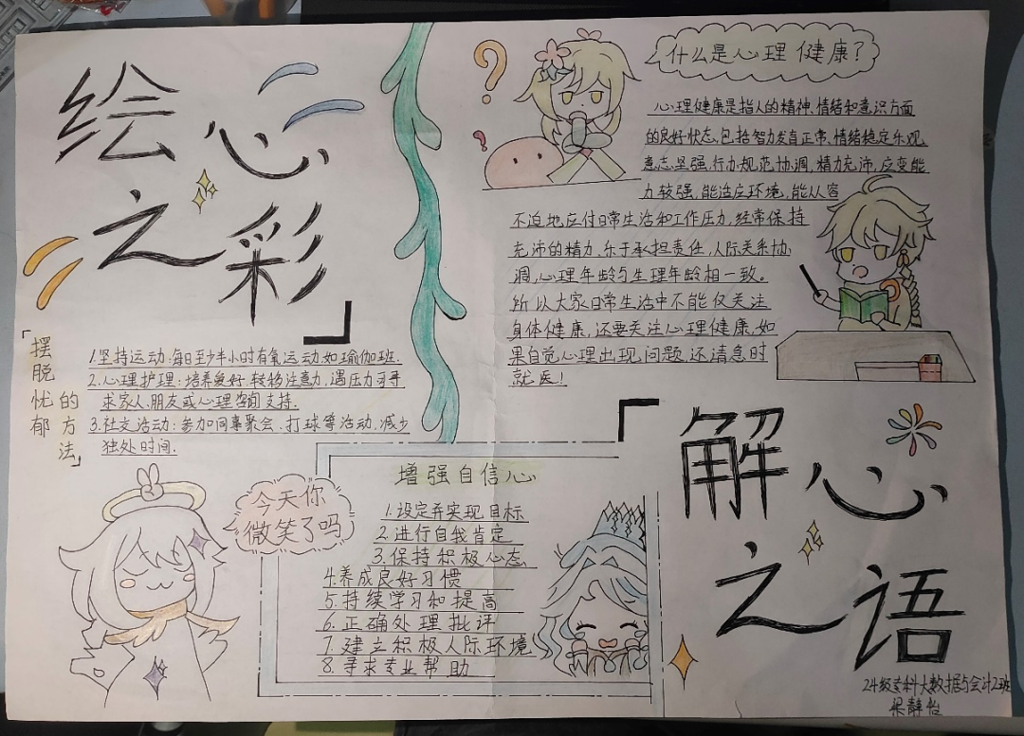 绘心
之彩
什么是心理健康？
心理健康是指人的精神、情绪和意识方面
的良好状态，包括智力发育正常、情绪稳定乐观，
意志坚强，行为规范协调，精力充沛，应变能
力较强，能适应环境，能从容
不迫地应付日常生活和工作压力，经常保持
充沛的精力，乐于承担责任，人际关系协
调，心理年龄与生理年龄相一致。
所以大家日常生活中不能仅关注
身体健康，还要关注心理健康，如
果自觉心理出现问题，还请急时
就医！
「摆脱忧郁
的方法」
1.坚持运动：每日至少半小时有氧运动如瑜伽班.
2.心理护理：培养爱好 转移注意力，遇压力可寻
求家人、朋友或心理咨询支持.
3.社交活动：参加同事聚会、打球等活动，减少
独处时间.
今天你
微笑了吗
增强自信心
1.设定并实现目标
2.进行自我肯定
3.保持积极心态
4.养成良好习惯
5.持续学习和提高
6.正确处理批评
7.建立积极人际环境
8.寻求专业帮助
解心
之语
24级专科大数据与会计2班
梁静怡